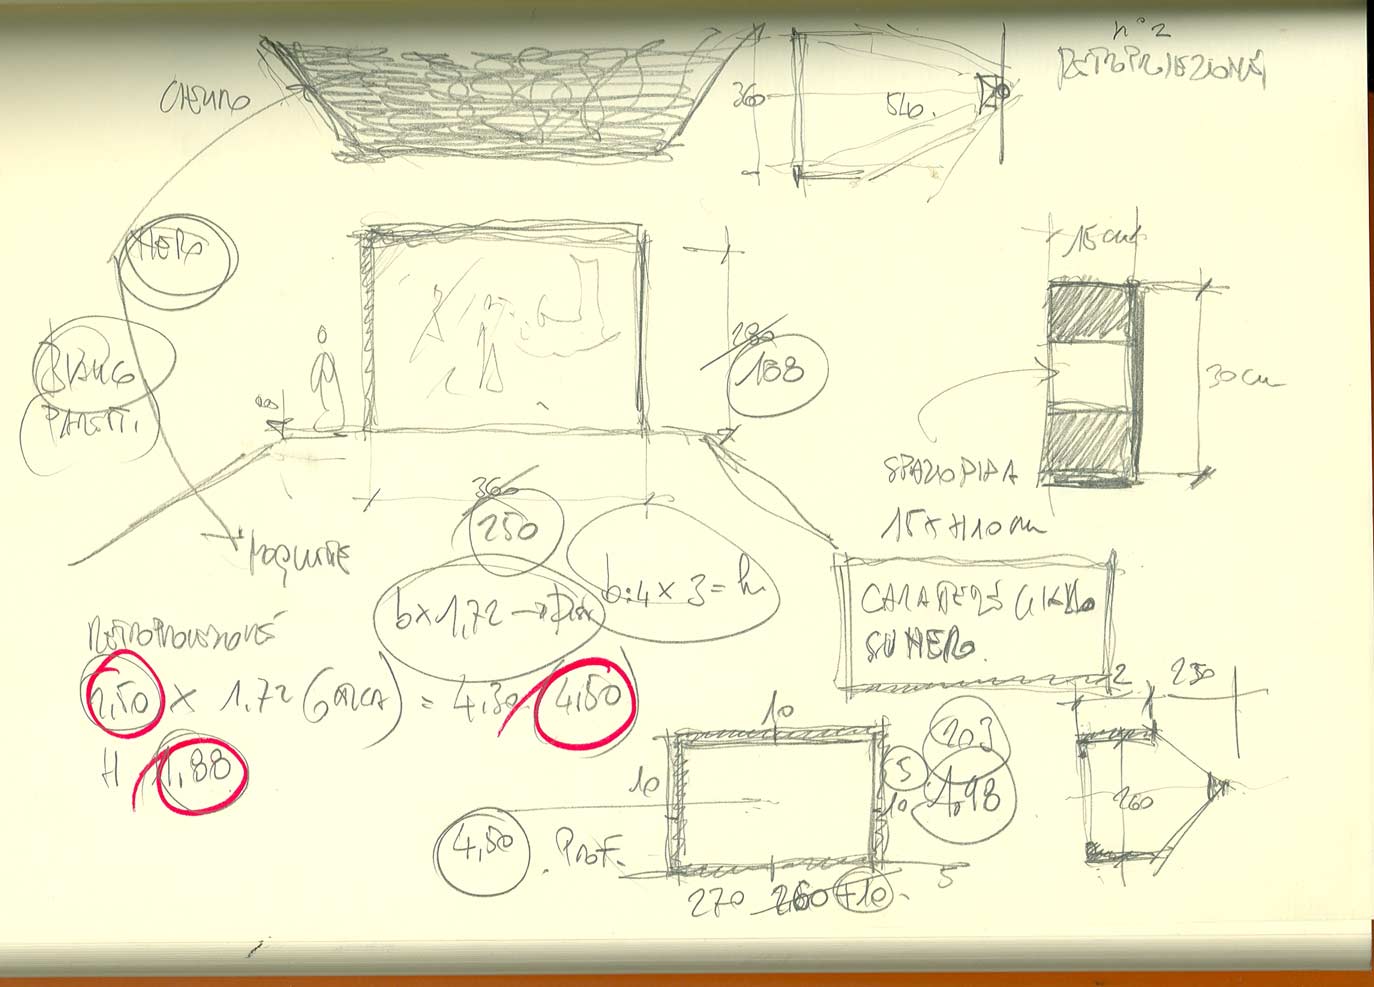 n° 2
RETROPROIEZIONE
CIELINO
360
540.
NERO
15 cm
BIANCO
PARETI.
180
188
30 cm
SPAZIO PIPA
15 x H10 cm
360
250
MOQUETTE
b x 1,72 → Dist
b:4 x 3 = h
CARATTERE GIALLO
SU NERO.
RETROPROIEZIONE
2,50 x 1,72 (CIRCA) = 4,30 4,50
H 1,88
2 250
10
203
10 5
10 1,98
260
4,50. PROF.
5
270 260 +10.